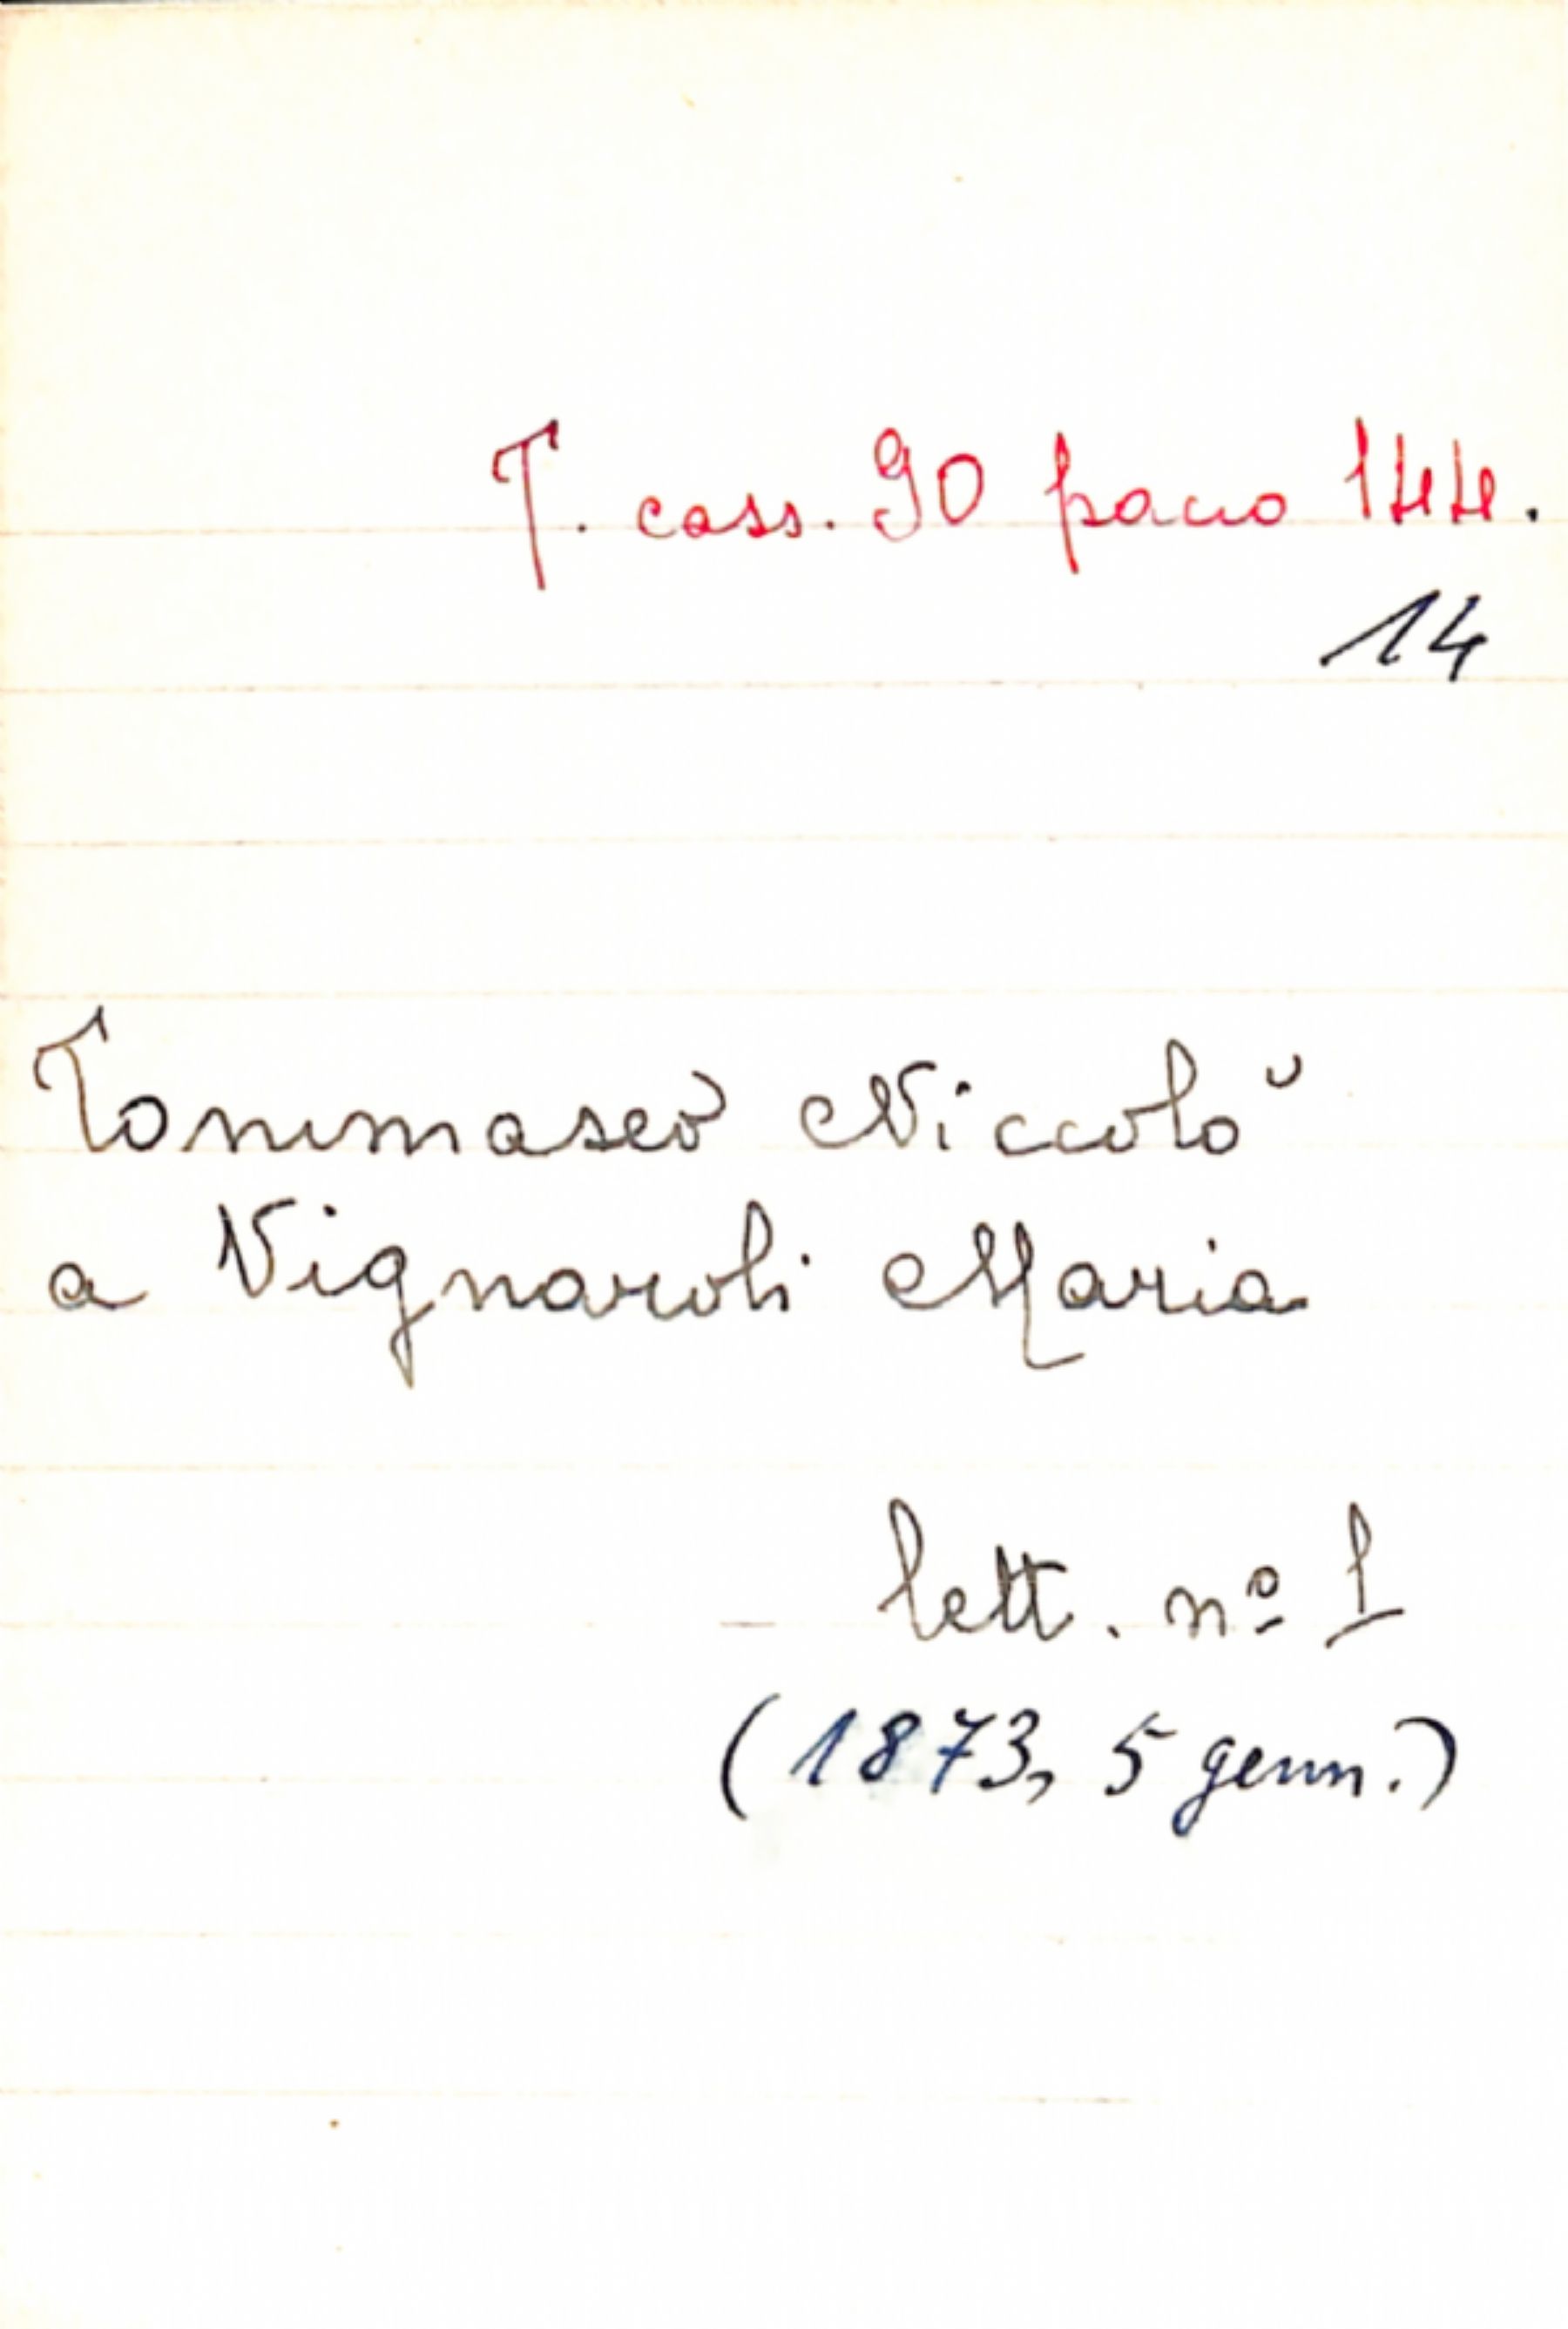 T. cass. 90 pacco 144.
14
Tommaseo Niccolò
a Vignaroli Maria
lett. nº 1
(1873, 5 genn.)